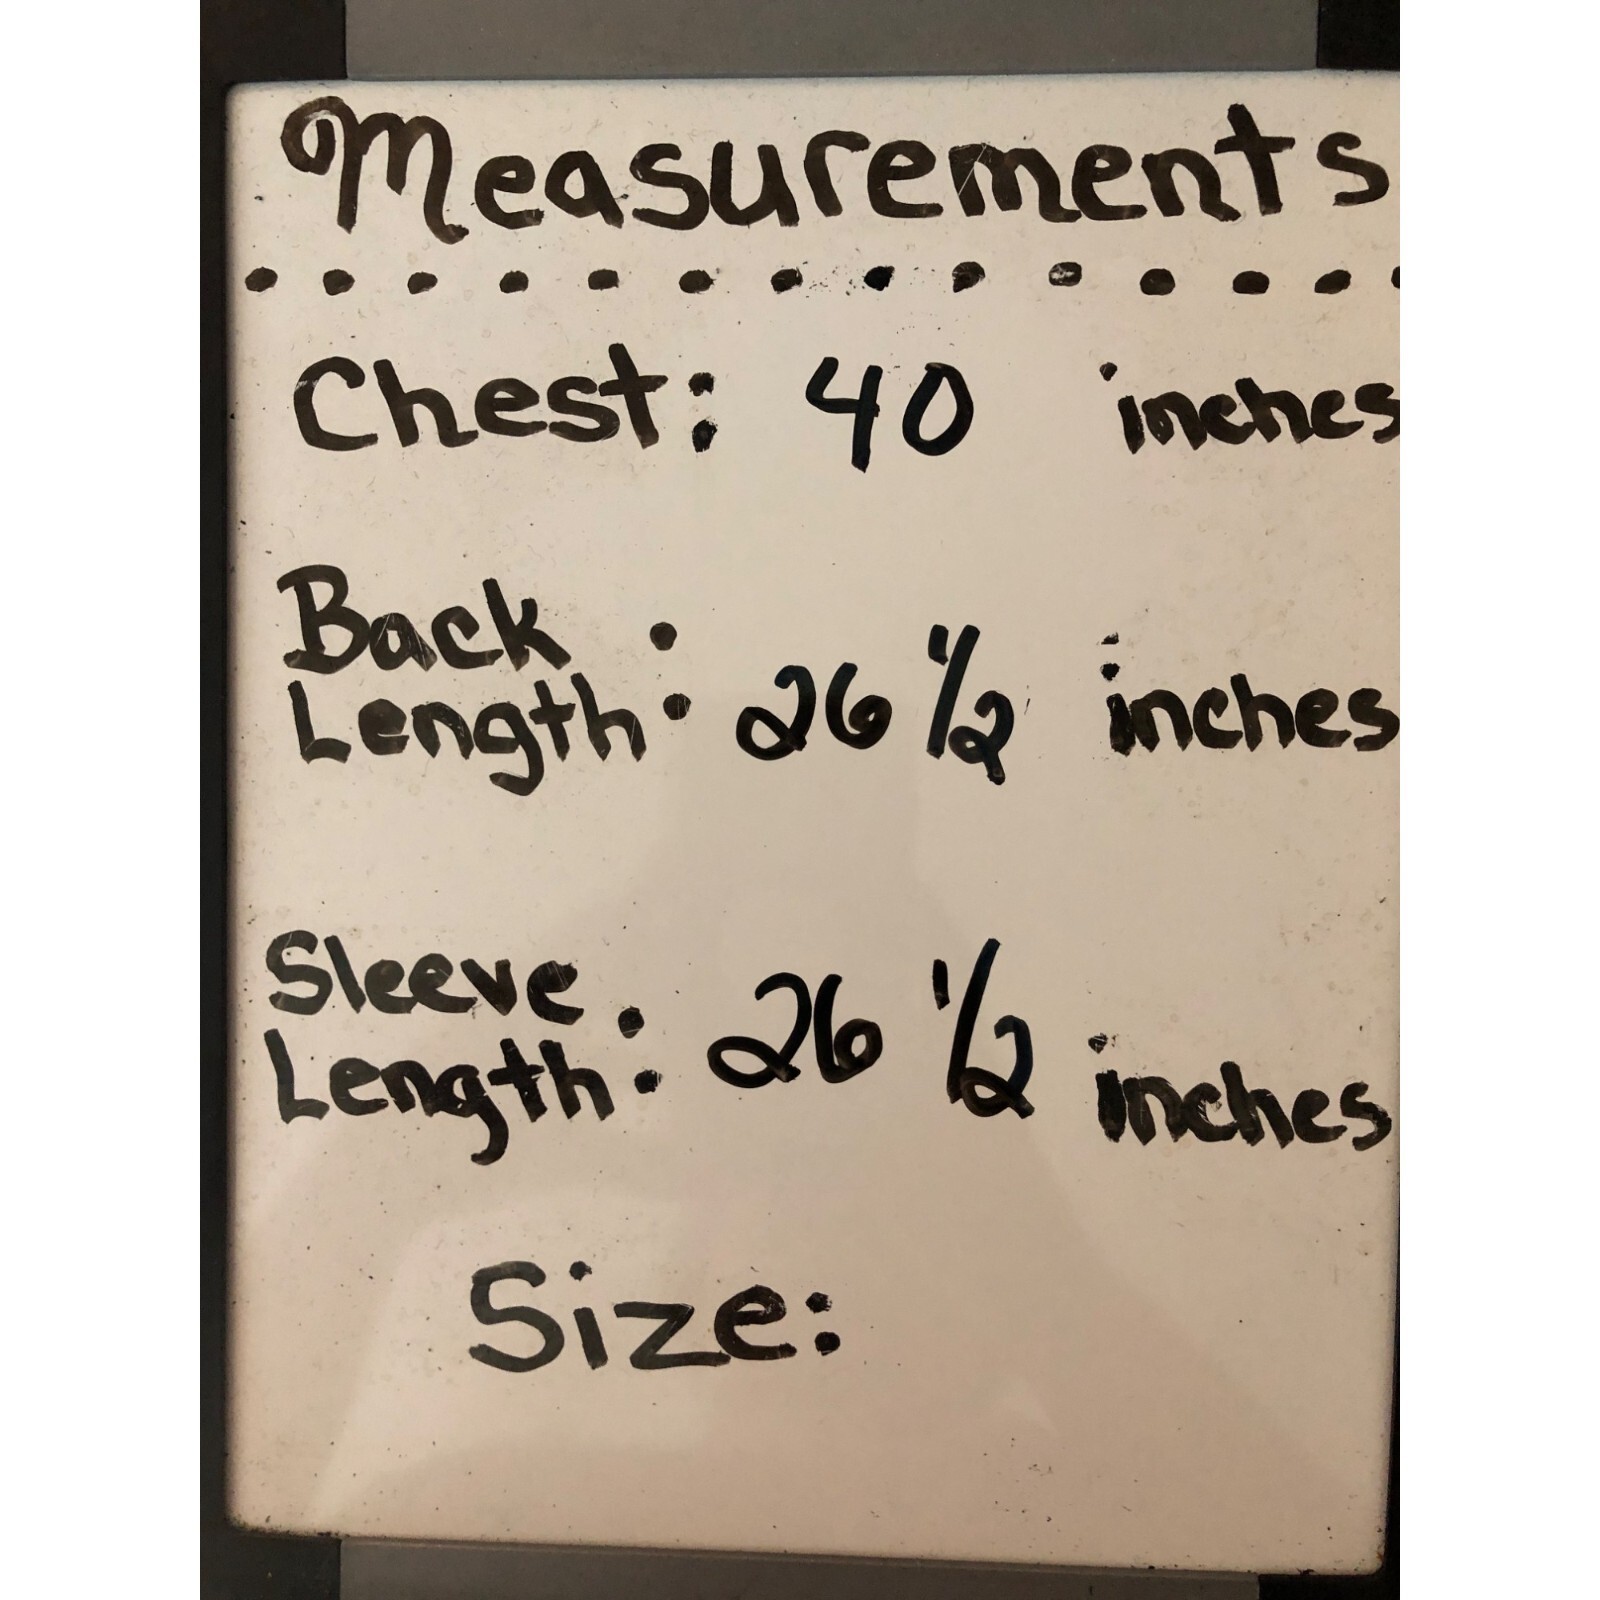 Measurements
Chest: 40 inches
Back
Length: 26 1/2 inches
Sleeve
Length: 26 1/2 inches
Size: